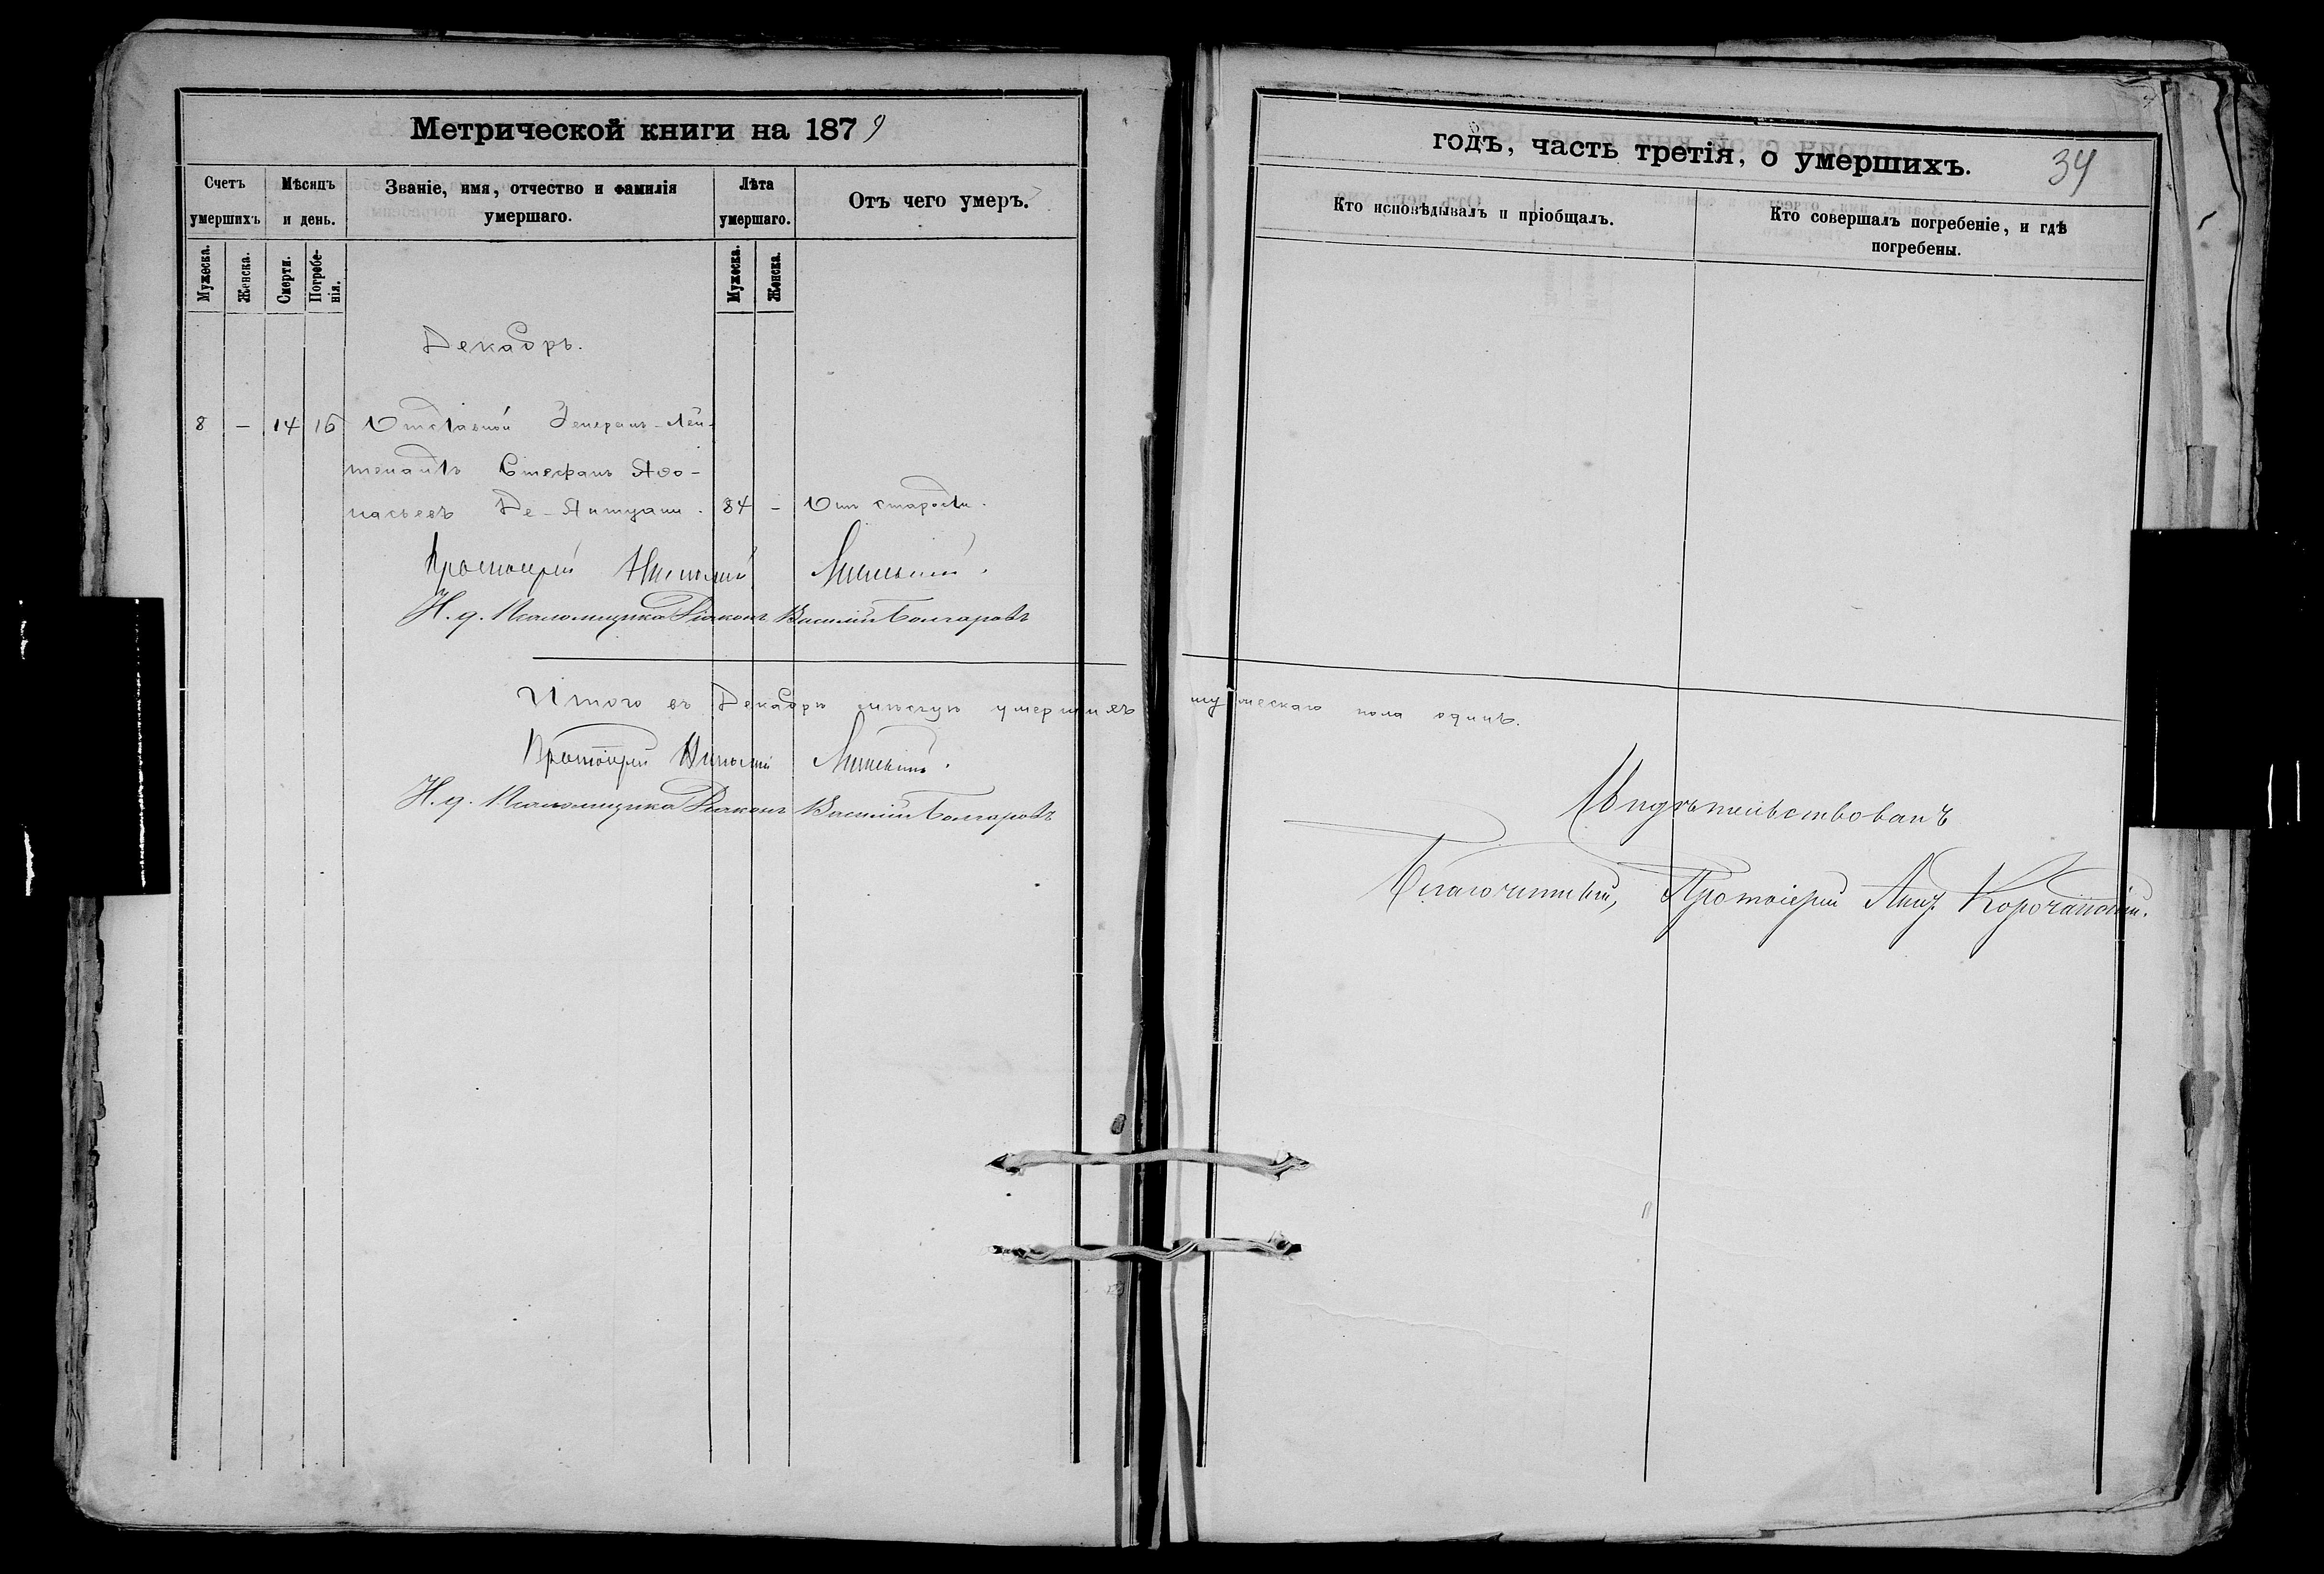 Метрической книги на 1879
Счетъ умершихъ
Мѣсяцъ и день.
Званіе, имя, отчество и фамилія умершаго.
Лѣта умершаго.
Отъ чего умеръ.
Мужеска.
Женска.
Смерти.
Погребенія.
Мужеска.
Женска.
Декабрь.
8 – 14 16 Отставной Генералъ-Лей-
тенантъ Стефанъ Аѳа-
насьевъ Де-Антуани. 84 – Отъ старости.
Протоіерей Николай
Н. д. Псаломщика Діаконъ Василій Болгаровъ
Итого въ Декабрѣ мѣсяцѣ умершихъ мужескаго пола одинъ.
Протоіерей Николай
Н. д. Псаломщика Діаконъ Василій Болгаровъ
годъ, часть третія, о умершихъ.
34
Кто исповѣдывалъ и пріобщалъ.
Кто совершалъ погребеніе, и гдѣ погребены.
Свидѣтельствовалъ
Благочинный, Протоіерей